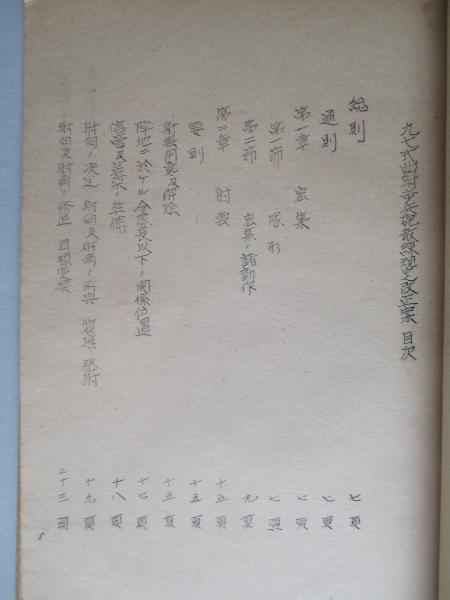 九七式曲射歩兵砲教練規定改正案 目次
総則 七頁
通則 七頁
第一章 密集 七頁
第一節 隊形 七頁
第二節 密集ノ諸動作 九頁
第二章 射撃 十五頁
要則 十五頁
射撃用意及解除 十五頁
陣地ニ於ケル分隊長以下ノ関係位置 十七頁
信管及装薬ノ準備 十八頁
射向ノ決定 射向及射角ノ付與 装填 発射 十九頁
射向及射角ノ修正 目標変換 二十三頁